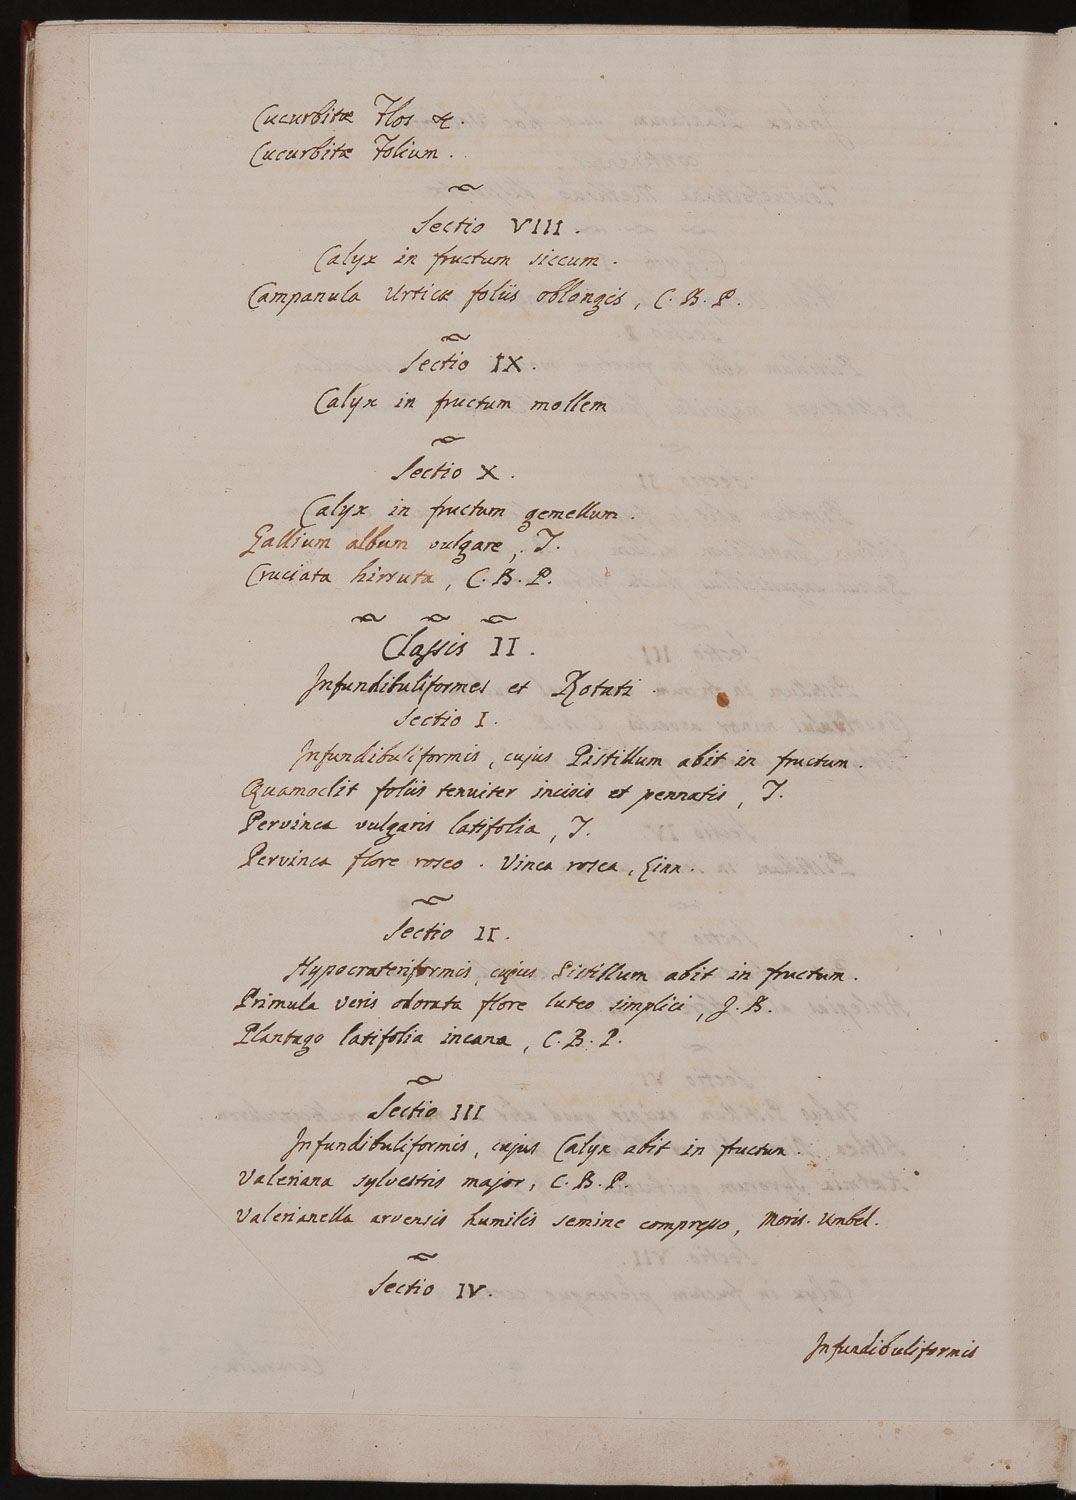 Cucurbitæ Flos &.
Cucurbitæ Folium.
Sectio VIII.
Calyx in fructum siccum.
Campanula Urticæ foliis oblongis, C. B. P.
Sectio IX.
Calyx in fructum mollem
Sectio X.
Calyx in fructum gemellum.
Gallium album vulgare, T.
Cruciata hirsuta, C. B. P.
Classis II.
Infundibuliformes et Rotati.
Sectio I.
Infundibuliformis, cujus Pistillum abit in fructum.
Quamoclit foliis tenuiter incisis et pennatis, T.
Pervinca vulgaris latifolia, T.
Pervinca flore roseo. Vinca rosea, Linn.
Sectio II.
Hypocrateriformis, cujus Pistillum abit in fructum.
Primula veris odorata flore luteo simplici, J. B.
Plantago latifolia incana, C. B. P.
Sectio III
Infundibuliformis, cujus Calyx abit in fructum.
Valeriana sylvestris major, C. B. P.
Valerianella arvensis humilis semine compresso, Moris. Umbel.
Sectio IV.
Infundibuliformis